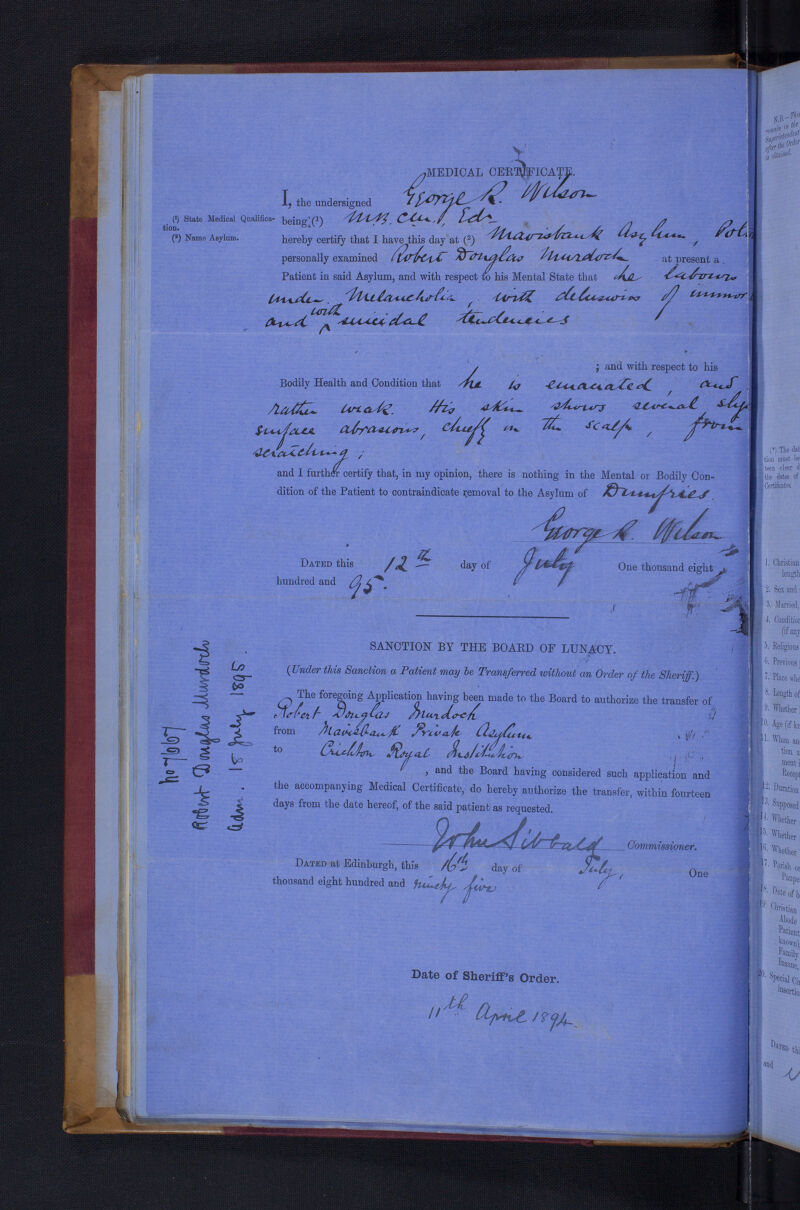 MEDICAL CERTIFICATE.
I, the undersigned George R. Wilson
(¹) State Medical Qualifica-
tion.
being (¹) M.B. C.M., Edr
(²) Name Asylum.
hereby certify that I have this day at (²) Mavisbank Asylum, Pol
personally examined Robert Douglas Murdoch at present a
Patient in said Asylum, and with respect to his Mental State that he labours
under Melancholia, with delusions of immor
and with suicidal tendencies
; and with respect to his
Bodily Health and Condition that he is emaciated, and
rather weak. His skin shows several
surface abrasions, chiefly on the scalp, from
scratching;
and I further certify that, in my opinion, there is nothing in the Mental or Bodily Con-
dition of the Patient to contraindicate removal to the Asylum of Dumfries.
George R. Wilson
DATED this 12th day of July One thousand eight
hundred and 95.
SANCTION BY THE BOARD OF LUNACY.
(Under this Sanction a Patient may be Transferred without an Order of the Sheriff.)
The foregoing Application having been made to the Board to authorize the transfer of
Robert Douglas Murdoch
from Mavisbank Private Asylum
to Crichton Royal Institution
, and the Board having considered such application and
the accompanying Medical Certificate, do hereby authorize the transfer, within fourteen
days from the date hereof, of the said patient as requested.
John Sibbald Commissioner.
DATED at Edinburgh, this 16th day of July, One
thousand eight hundred and ninety five
Date of Sheriff's Order.
11th April 1894.
Robert Douglas Murdoch
Adm. 18 July 1895.
N.B.
(*) The dat
tion must be
been clear d
the dates of
Certificates
1. Christian
length
2. Sex and
3. Married,
4. Condition
(if any
5. Religious
6. Previous
7. Place whe
8. Length of
9. Whether
10. Age (if kn
11. When an
tion a
ment i
Recep
12. Duration
13. Supposed
14. Whether
15. Whether
16. Whether
17. Parish or
Paupe
18. Date of b
19. Christian
Abode
Patient
known)
Family
Insane,
20. Special Cir
Insertio
DATED thi
and